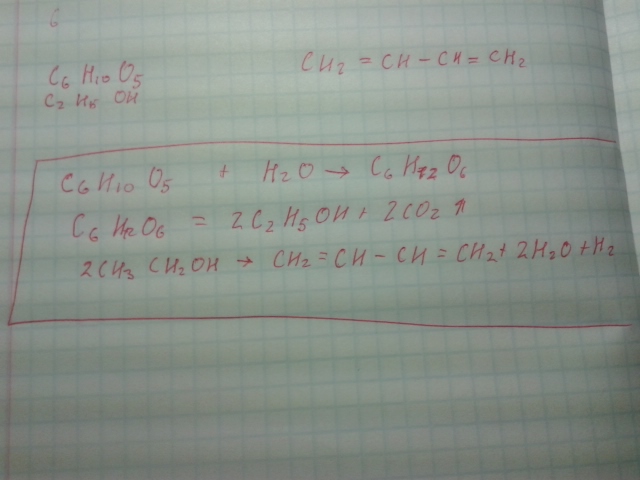 6
C6 H10 O5
CH2 = CH - CH = CH2
C2 H5 OH
C6 H10 O5 + H2O → C6 H12 O6
C6 H12 O6 = 2C2 H5 OH + 2CO2 ↑
2CH3 CH2OH → CH2 = CH - CH = CH2 + 2H2O + H2